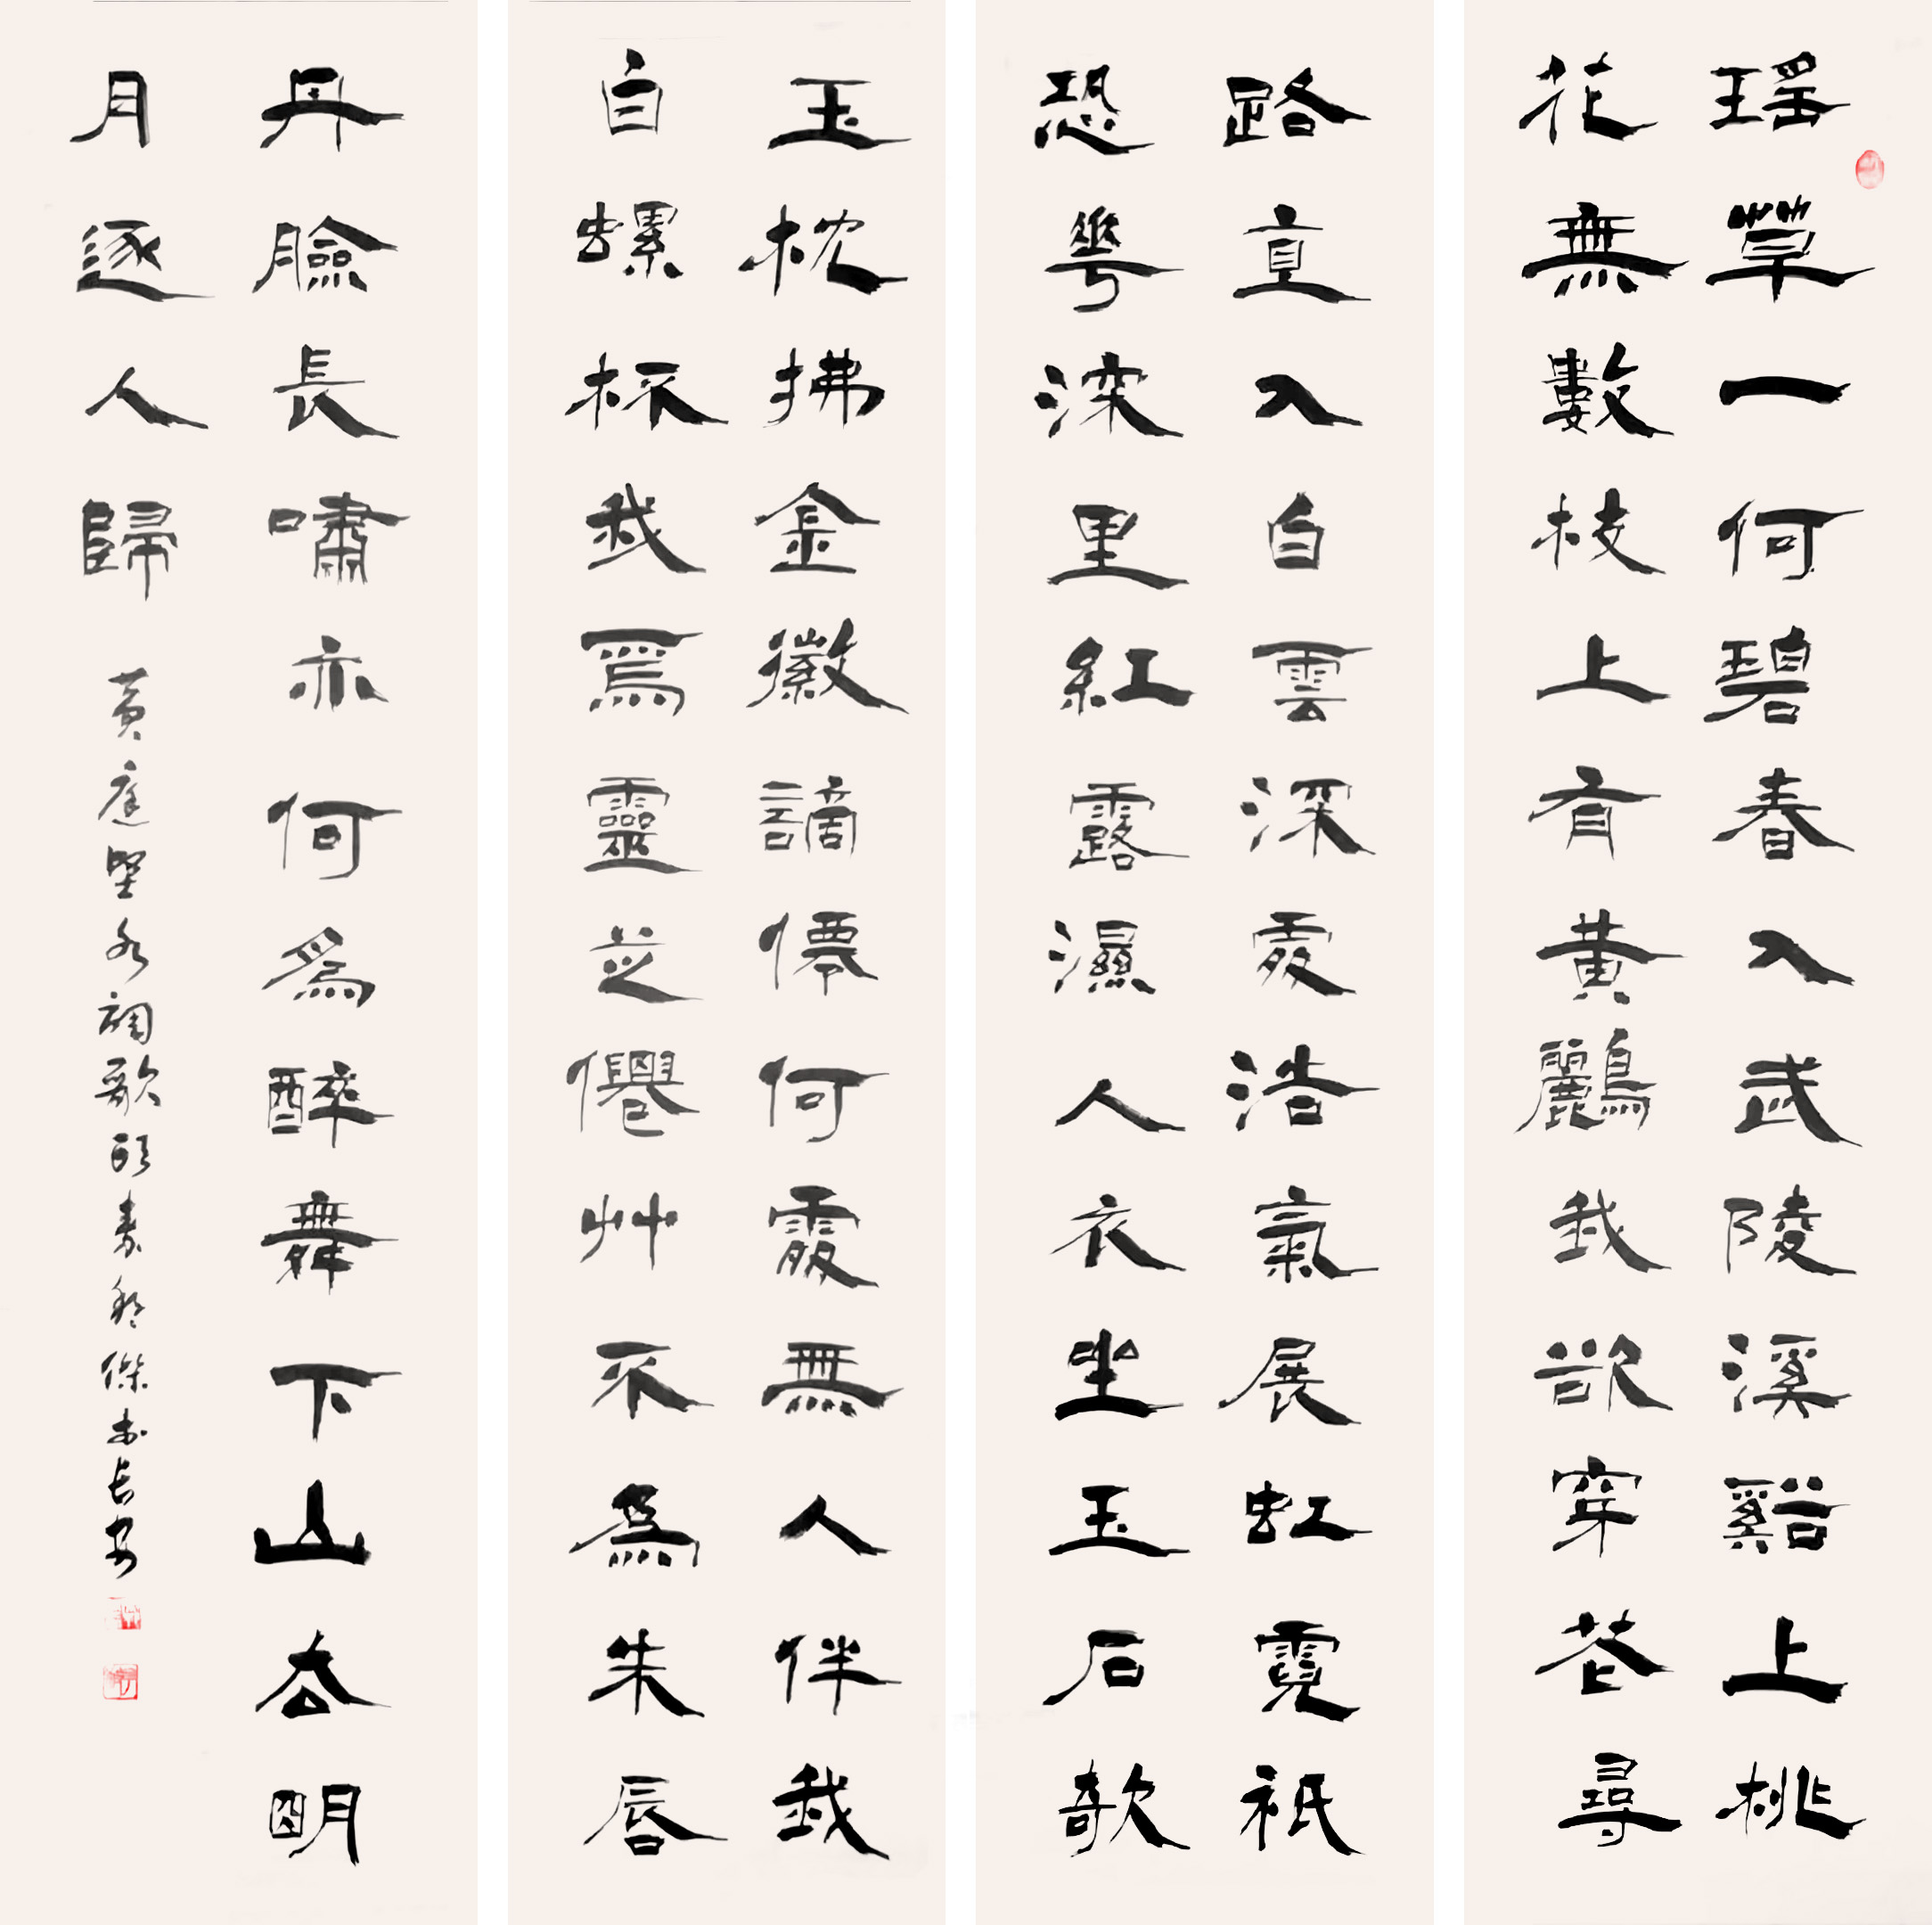 瑤草一何碧春入武陵溪谿上桃
花無數枝上有黃鸝我欲穿花尋
路直入白雲深處浩氣展虹霓祇
恐華深里紅露濕人衣坐玉石欹
玉枕拂金徽謫僊何處無人伴我
白螺杯我爲靈芝僊艸不爲朱唇
丹臉長嘯亦何爲醉舞下山去明
月逐人歸
黃庭堅水調歌頭傑书長安